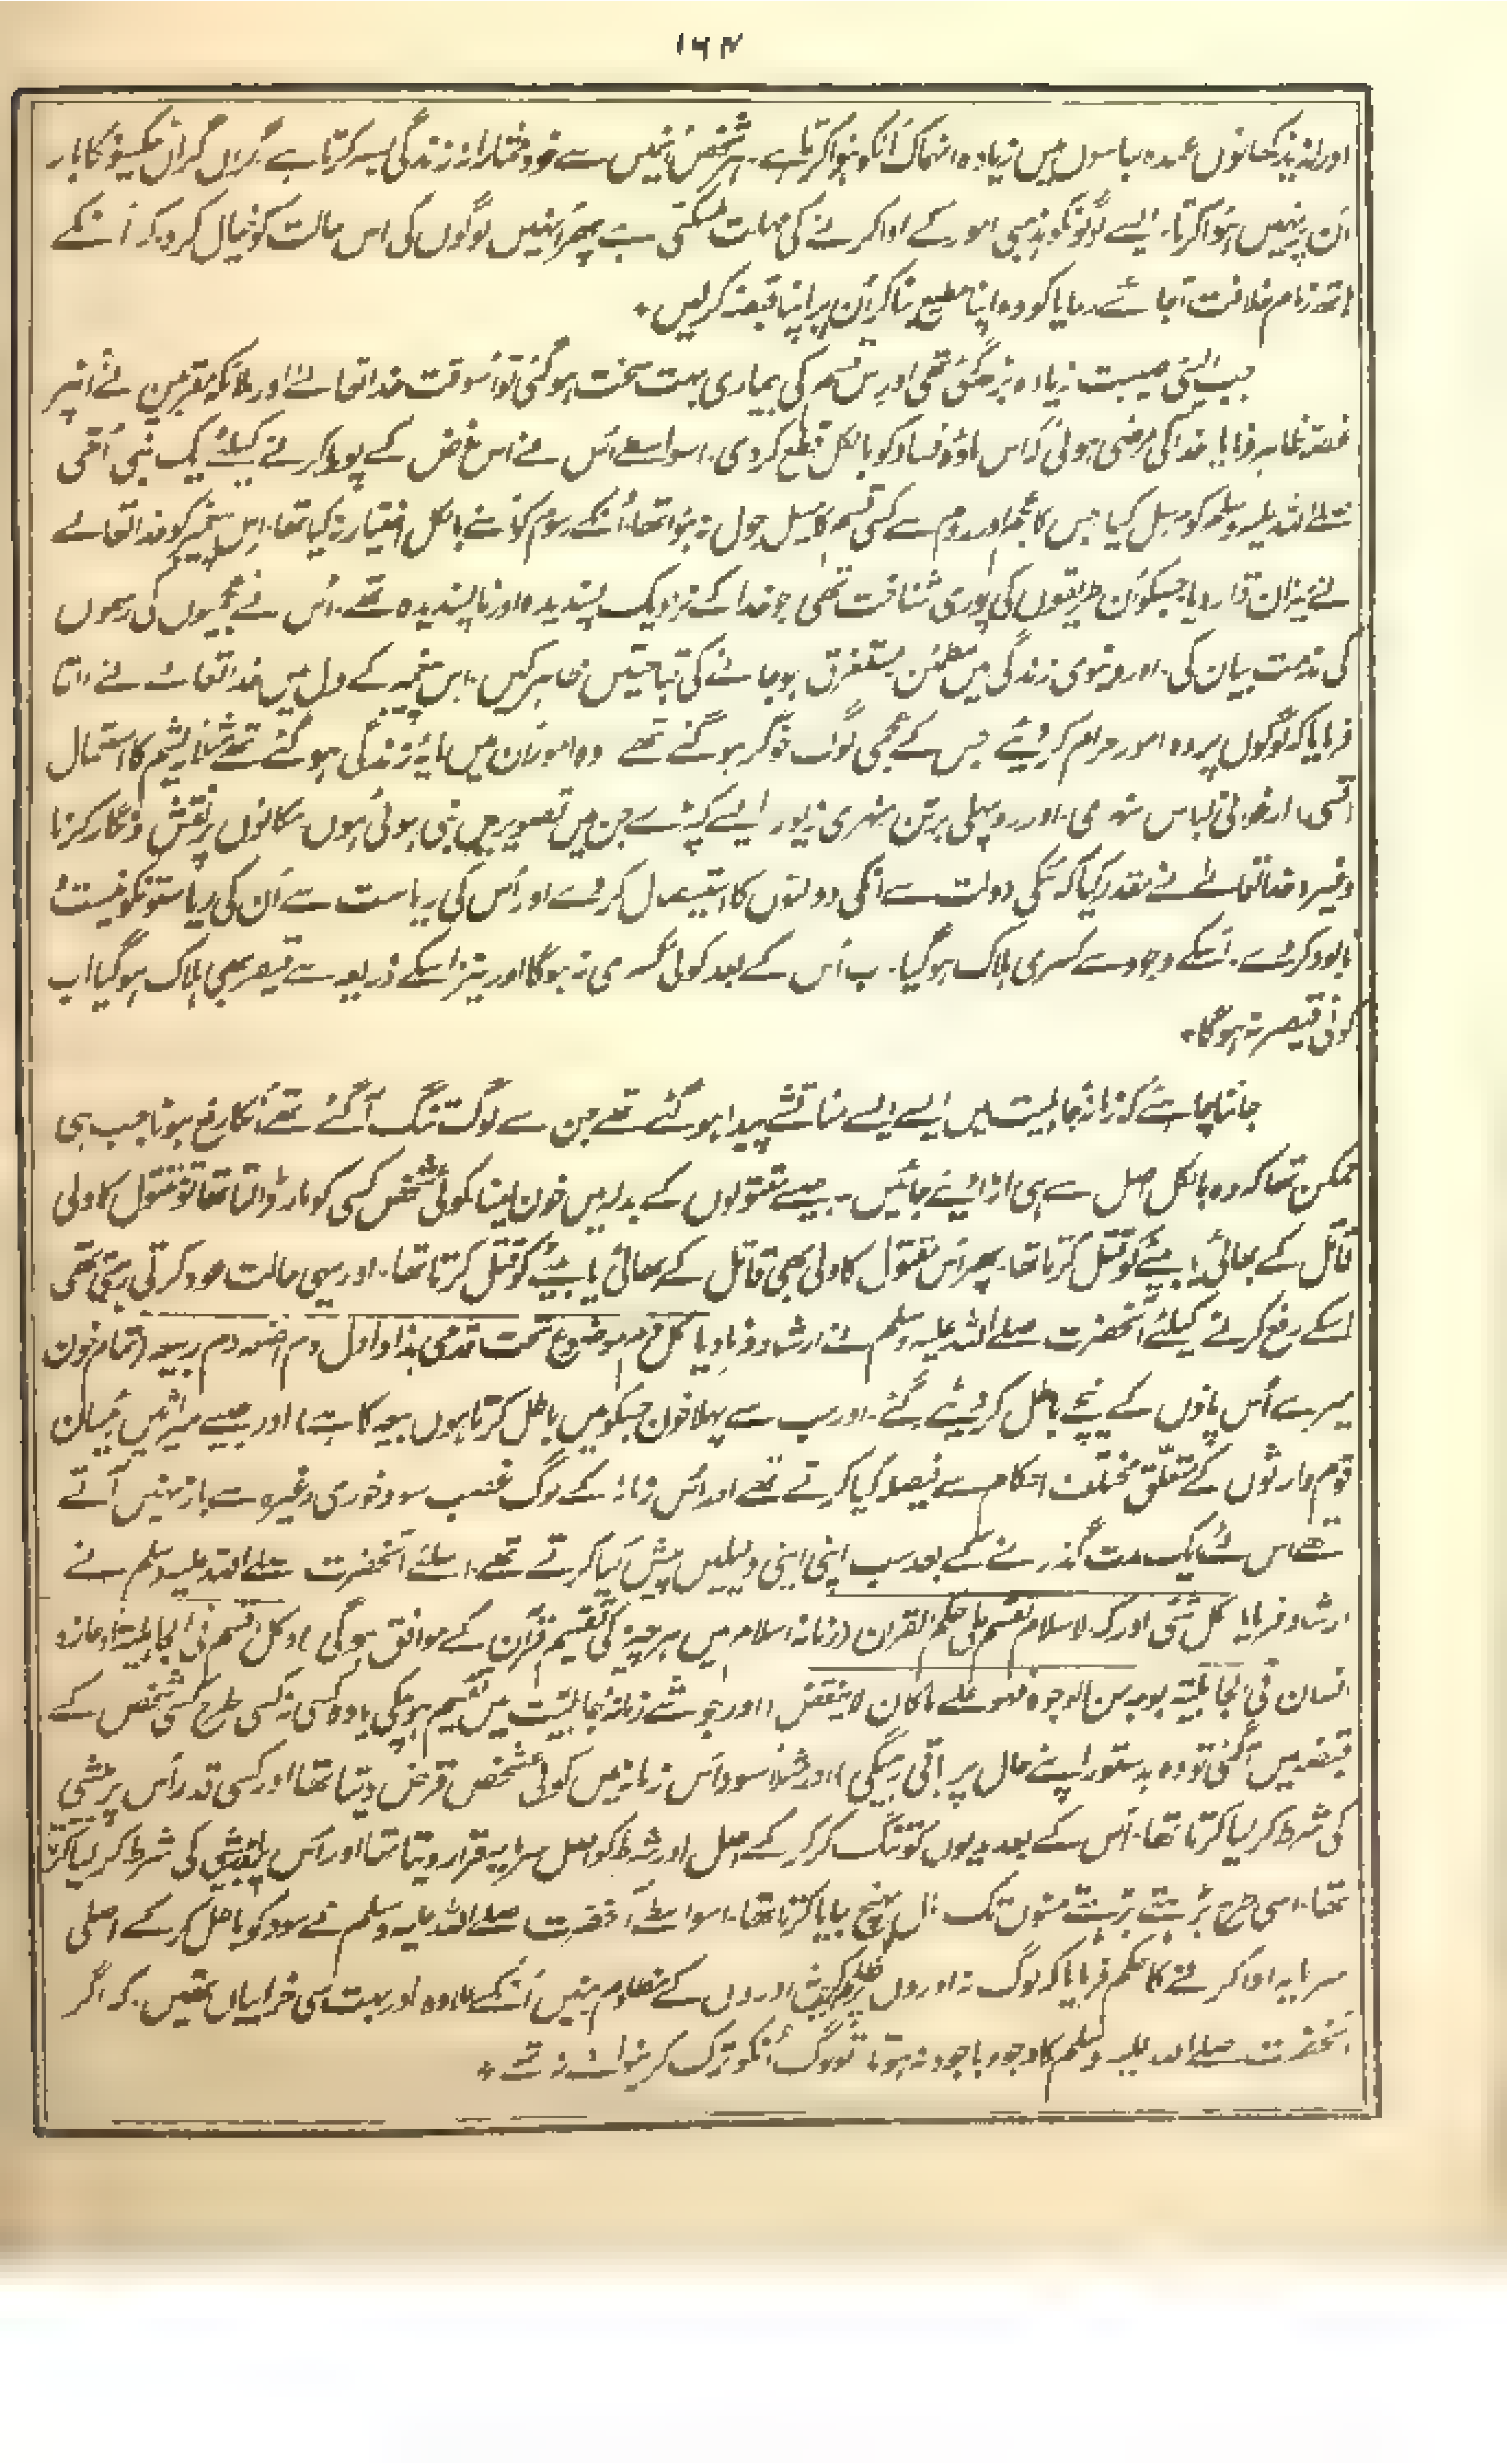 ۱۶۴
اور لذیذ کھانوں عمدہ لباسوں میں زیادہ انہماک انکو ہوا کرتا ہے۔ ہر شخص انہیں سے خود مختارانہ زندگی بسر کرتا ہے گراں گراں ٹیکسونکا بار
اُن پر نہیں ہوا کرتا۔ ایسے لوگونکو مذہبی امور کے ادا کرنے کی مہلت ملسکتی ہے پھر اُنہیں لوگوں کی اس حالت کو خیال کرو۔ کہ اُنکے
ہاتھ زمام خلافت آجائے رعایا کو وہ اپنا مطیع بنا کر اُن پر اپنا قبضہ کر لیں ۔
جب ایسی مصیبت زیادہ بڑھ گئی تھی اور اس قسم کی بیماری بہت سخت ہو گئی تو اُسوقت خدا تعالےٰ اور ملائکہ مقربین نے اُنپر
غصہ ظاہر فرمایا خدا کی مرضی ہوئی کہ اس مادۂ فساد کو بالکل قطع کر دی۔ اسواسطے اُس نے اس غرض کے پورا کرنے کیلئے ایک نبی اُمّی
صلے اللہ علیہ وسلم کو مرسل کیا جس کا عجم اور روم سے کسی قسم کا میل جول نہ ہوا تھا۔ اُنکے رسوم کو اُسنے بالکل اختیار نہ کیا تھا۔ اِس پیغمبر کو خدا تعالےٰ
نے میزان قرار دیا جسکو اُن طریقوں کی پوری شناخت تھی جو خدا کے نزدیک پسندیدہ اور ناپسندیدہ تھے۔ اُس نے عجمیوں کی رسموں
کی مذمت بیان کی۔ اور دنیوی زندگی میں مطمئن مستغرق ہو جانے کی قباحتیں ظاہر کیں۔ اس پیغمبر کے دل میں خدا تعالےٰ نے القا
فرمایا کہ لوگوں پر وہ امور حرام کر دیئے جس کے عجمی لوگ خوگر ہو گئے تھے وہ امور اُن میں مایۂ زندگی ہو گئے تھے مثلاً ریشم کا استعمال
قسّی، ارغوانی لباس سنہری اور روپہلی برتن سنہری زیور ایسے کپڑے جن میں تصویریں بنی ہوئی ہوں مکانوں پر نقش و نگار کرنا
وغیرہ خدا تعالےٰ نے مقدر کیا کہ اُسکی دولت سے انکی دولتوں کا استیصال کر دے اور اُس کی ریاست سے اُن کی ریاستونکو نیست و
نابود کر دے۔ اُسکے وجود سے کسریٰ ہلاک ہو گیا۔ اب اُس کے بعد کوئی کسریٰ نہ ہوگا اور نیز اُسکے ذریعہ سے قیصر بھی ہلاک ہو گیا اب
کوئی قیصر نہ ہوگا۔
جاننا چاہئے کہ زمانۂ جاہلیت میں ایسے ایسے مناقشے پیدا ہو گئے تھے جن سے لوگ تنگ آ گئے تھے اُنکا رفع ہونا جب ہی
ممکن تھا کہ وہ بالکل اصل سے ہی اڑا دیئے جائیں۔ جیسے مقتولوں کے بدلہ میں خون لینا کوئی شخص کسی کو مار ڈالتا تھا تو مقتول کا ولی
قاتل کے بھائی یا بیٹے کو قتل کرتا تھا۔ پھر اُس مقتول کا ولی بھی قاتل کے بھائی یا بیٹے کو قتل کرتا تھا۔ اور یہی حالت عود کرتی رہتی تھی
اسکے رفع کرنے کیلئے آنحضرت صلے اللہ علیہ وسلم نے ارشاد فرما دیا کل دم موضوع تحت قدمی ہذا واول دم اضعہ دم ربیعہ (تمام خون
میرے اُس پاؤں کے نیچے باطل کر دیئے گئے۔ اور سب سے پہلا خون جسکو میں باطل کرتا ہوں ربیعہ کا ہے) اور جیسے میراثیں
قوم وارثوں کے متعلق مختلف احکام سے فیصلہ کیا کرتے تھے اور اُس زمانہ کے لوگ غصب سود خوری وغیرہ سے باز نہیں آتے
تھے اس لئے ایک مدت گذرنے کے بعد سب اپنی اپنی دلیلیں پیش کیا کرتے تھے، اسلئے آنحضرت صلے اللہ علیہ وسلم نے
ارشاد فرمایا کل شئی ادرکہ الاسلام یقسم علی حکم القران (زمانہ اسلام میں ہر چیز کی تقسیم قرآن کے موافق ہوگی) وکل ما قسم فی الجاہلیۃ او حازہ
انسان فی الجاہلیۃ بوجہ من الوجوہ فہو علے ما کان لا ینقض (اور جو شے زمانۂ جاہلیت میں تقسیم ہو چکی یا وہ کسی نہ کسی طرح کسی شخص کے
قبضہ میں آگئی تو وہ بدستور اپنے حال پر باقی رہیگی) اور مثلاً سود اُس زمانہ میں کوئی شخص قرض دیتا تھا اور کسی قدر اُس پر بیشی
کی شرط کر لیا کرتا تھا۔ اُس کے بعد مدیوں کو تنگ کر کر کے اصل اور شرط کو اصل سرمایہ قرار دیتا تھا اور اُس پر بیشی کی شرط کر لیا کرتا
تھا۔ اسی طرح بڑہتے بڑہتے منوں تک مال پہنچ جایا کرتا تھا۔ اسواسطے آنحضرت صلے اللہ علیہ وسلم نے سود کو باطل کر کے اصلی
سرمایہ ادا کرنے کا حکم فرمایا کہ لوگ نہ اوروں پر ظلم کریں نہ اوروں کے مظلوم بنیں اُنکے علاوہ اور بہت سی خرابیاں تھیں۔ کہ اگر
آنحضرت صلے اللہ علیہ وسلم کا وجود باجود نہ ہوتا تو لوگ اُنکو ترک کرنیوالے نہ تھے۔